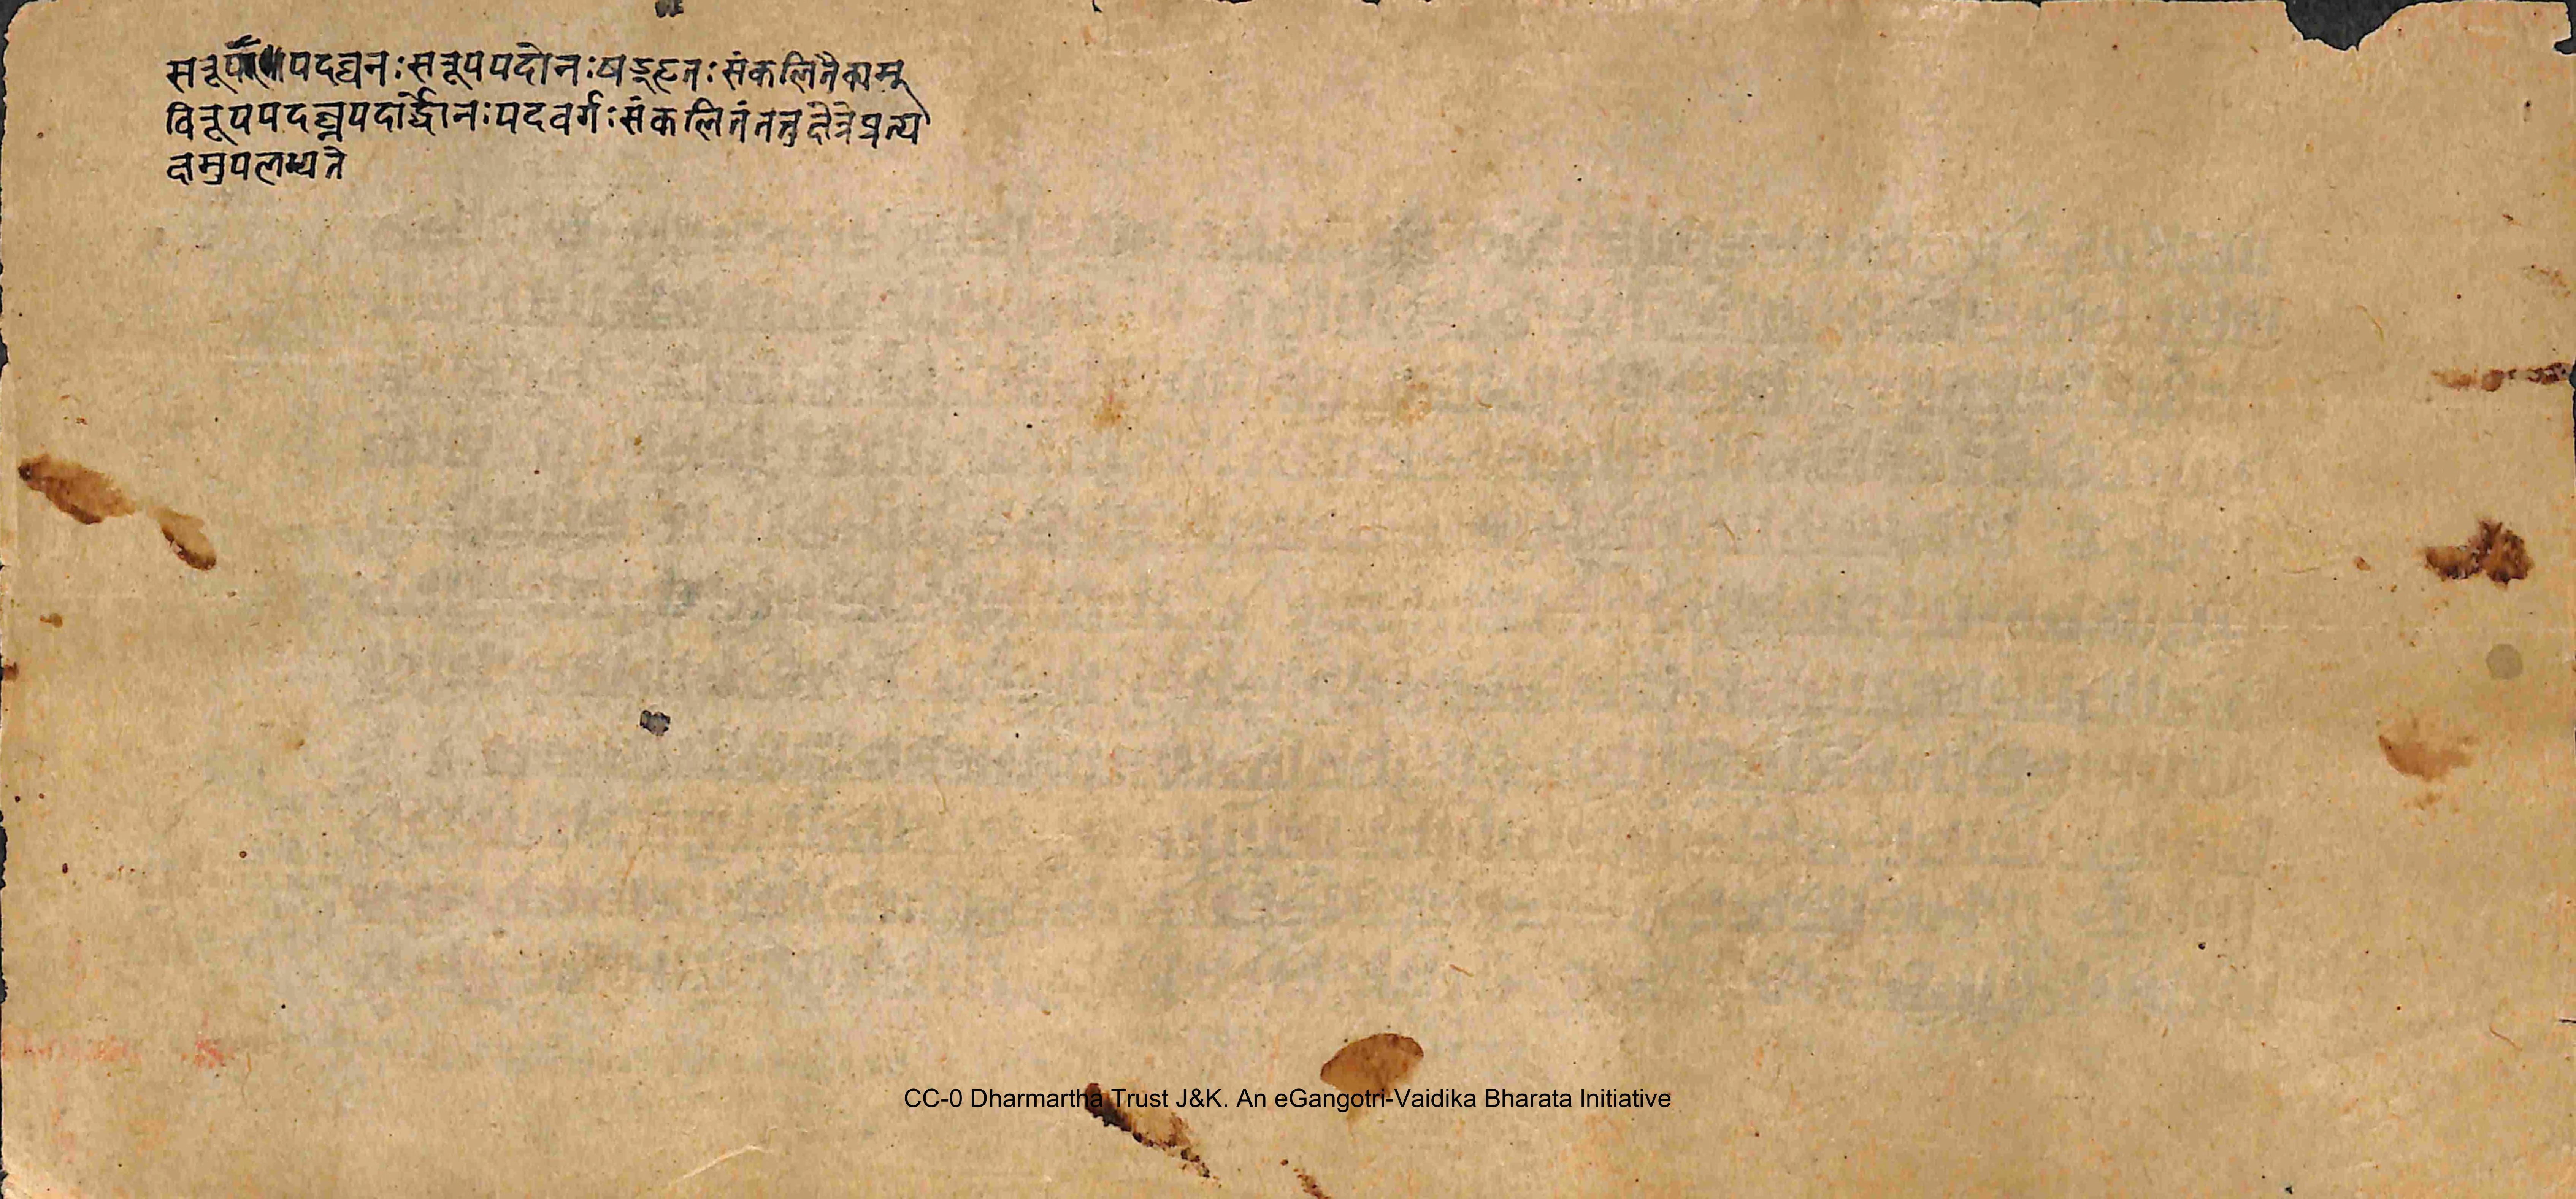 सरूपपदघनः सरूपपदोनः षड्हृतः संकलितैक्यम्
विरूपपदघ्नपदार्द्धोनः पदवर्गः संकलितं तत्तु क्षेत्रे प्रत्य
क्षमुपलभ्यते
CC-0 Dharmartha Trust J&K. An eGangotri-Vaidika Bharata Initiative